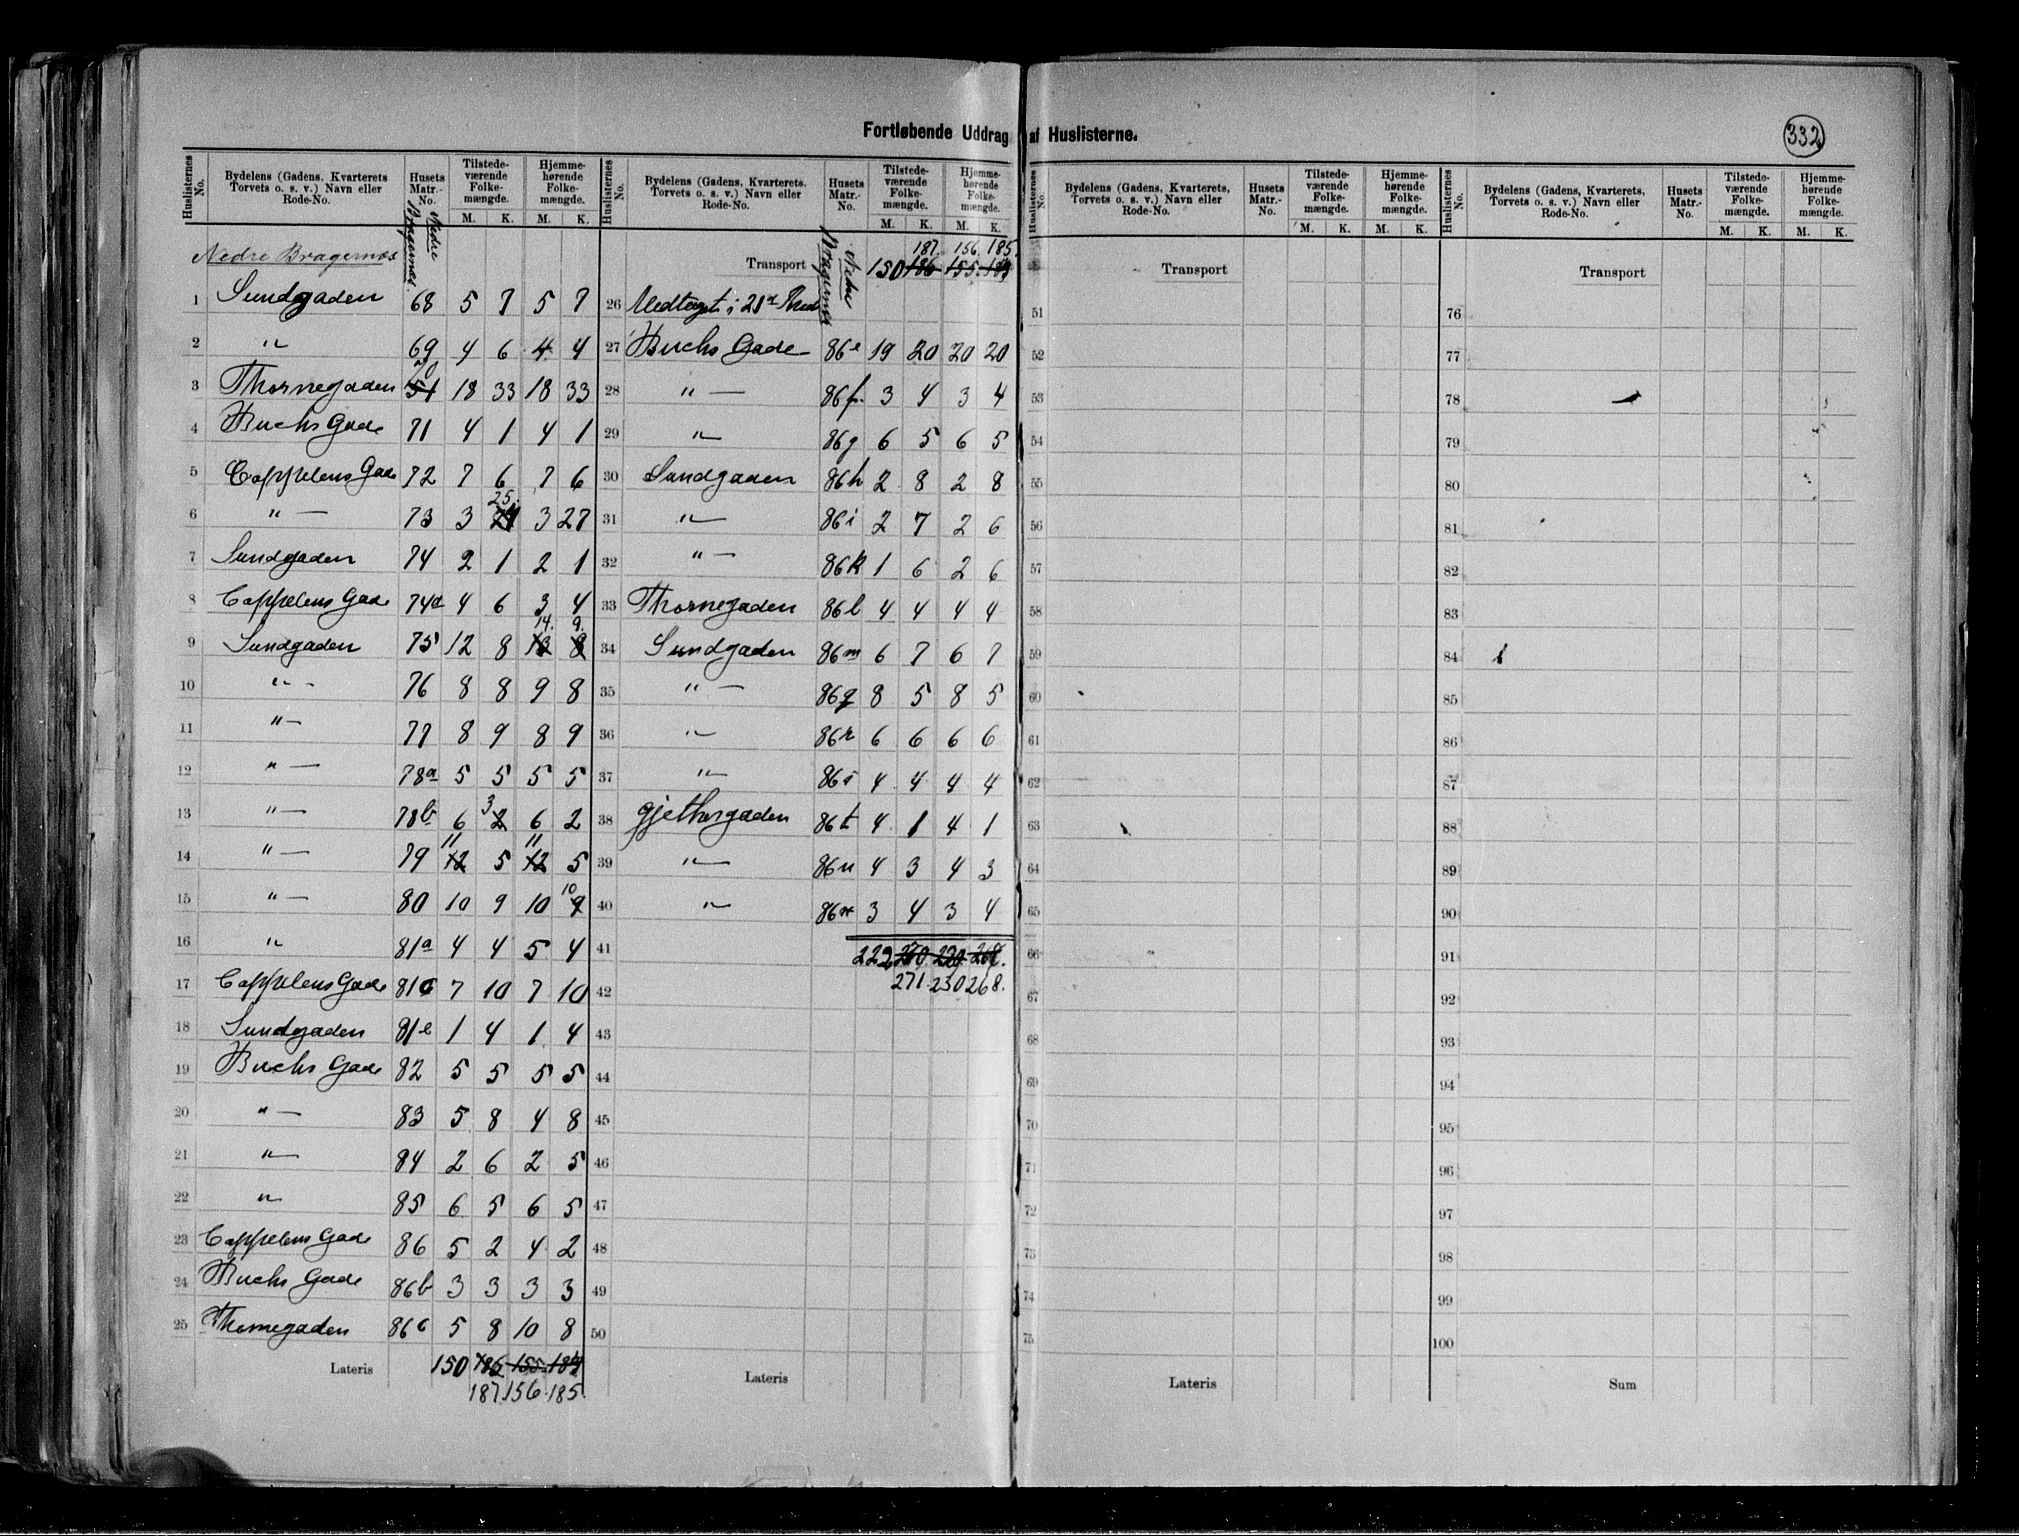 Fortløbende Uddrag af Huslisterne.
332
Huslisternes No. Bydelens (Gadens, Kvarterets Torvets o. s. v.) Navn eller Rode-No. Husets Matr.-No. Tilstede-værende Folke-mængde. M. K. Hjemme-hørende Folke-mængde. M. K.
Nedre Bragernæs
Nedre Bragernæs.
1 Sundgaden 68 5 7 5 7
2 " 69 4 6 4 4
3 Thornegaden 51 18 33 18 33
4 Buchs Gade 71 4 1 4 1
5 Cappelens Gade 72 7 6 7 6
6 " — 73 3 25. 3 27
7 Sundgaden 74 2 1 2 1
8 Cappelens Gade 74a 4 6 3 4
9 Sundgaden 75 12 8 14. 9.
10 " - 76 8 8 9 8
11 " — 77 8 9 8 9
12 " — 78a 5 5 5 5
13 " — 78b 6 3 2 6 2
14 " — 79 11 12 5 11 12 5
15 " — 80 10 9 10 10 9
16 " 81a 4 4 5 4
17 Cappelens Gade 81c 7 10 7 10
18 Sundgaden 81e 1 4 1 4
19 Buchs Gade 82 5 5 5 5
20 " — 83 5 8 4 8
21 " 84 2 6 2 5
22 " 85 6 5 6 5
23 Cappelens Gade 86 5 2 4 2
24 Buchs Gade 86b 3 3 3 3
25 Thornegaden 86c 5 8 10 8
Lateris 150 186 155 184
187. 156. 185.
Huslisternes No. Bydelens (Gadens, Kvarterets, Torvets o. s. v.) Navn eller Rode-No. Husets Matr.-No. Tilstede-værende Folke-mængde. M. K. Hjemme-hørende Folke-mængde. M. K.
Nedre Bragernæs
187. 156. 185.
Transport 150 186 155 184
26 Medtaget i 21de
27 Buchs Gade 86e 19 20 20 20
28 " — 86f. 3 4 3 4
29 " 86g 6 5 6 5
30 Sundgaden 86h 2 8 2 8
31 " 86i 2 7 2 6
32 " — 86k 1 6 2 6
33 Thornegaden 86l 4 4 4 4
34 Sundgaden 86m 6 7 6 7
35 " — 86q 8 5 8 5
36 " 86r 6 6 6 6
37 " 86s 4 4 4 4
38 Gjethusgaden 86t 4 1 4 1
39 " 86u 4 3 4 3
40 " 3 4 3 4
41 222 270. 229.
42 271. 230 268.
43
44
45
46
47
48
49
50
Lateris
Huslisternes No. Bydelens (Gadens, Kvarterets, Torvets o. s. v.) Navn eller Rode-No. Husets Matr.-No. Tilstede-værende Folke-mængde. M. K. Hjemme-hørende Folke-mængde. M. K.
Transport
51
52
53
54
55
56
57
58
59
60
61
62
63
64
65
66
67
68
69
70
71
72
73
74
75
Lateris
Huslisternes No. Bydelens (Gadens, Kvarterets, Torvets o. s. v.) Navn eller Rode-No. Husets Matr.-No. Tilstede-værende Folke-mængde. M. K. Hjemme-hørende Folke-mængde. M. K.
Transport
76
77
78
79
80
81
82
83
84
85
86
87
88
89
90
91
92
93
94
95
96
97
98
99
100
Sum